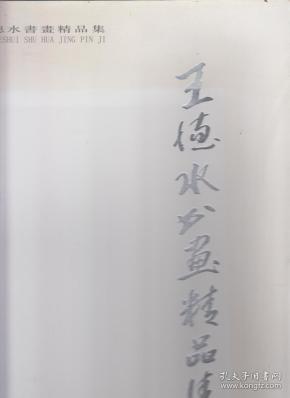 水書畫精品集
ESHUI SHU HUA JING PIN JI
王德水书畫精品集
孔夫子旧书网